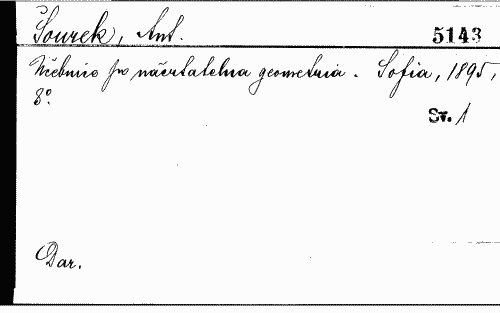 Šourek, Ant. 5143
Učebnic po načertatelna geometria. Sofia, 1895,
8°.
Sv. 1
Dar.